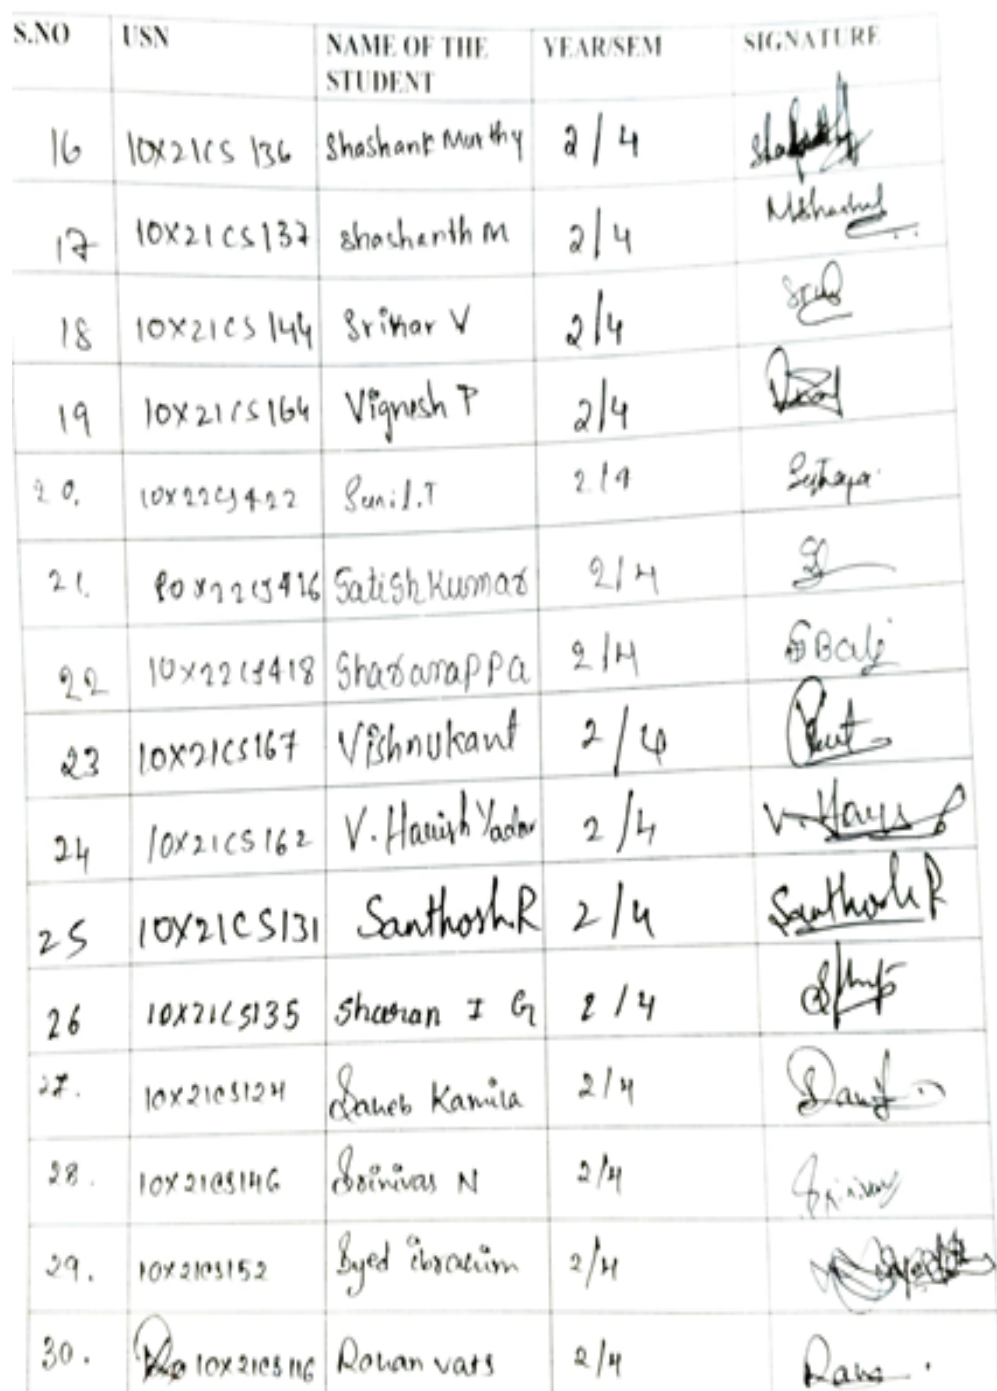 S.NO USN NAME OF THE STUDENT YEAR/SEM SIGNATURE
16 10X21CS 136 Shashank Murthy 2/4
17 10X21CS137 Shashanth M 2/4
18 10X21CS 144 Srihar V 2/4
19 10X21CS164 Vignesh P 2/4
20. 10X22CS422 Sunil.T 2/4
21. 10X22CS416 Satish Kumar 2/4
22 10X22CS418 Sharanappa 2/4
23 10X21CS167 Vishnukant 2/4
24 10X21CS162 V. Harish Yadav 2/4
25 10X21CS131 Santhosh.R 2/4 Santhosh R
26 10X21CS135 Sharan I G 2/4
27. 10X21CS124 2/4
28. 10X21CS146 Srinivas N 2/4 Srinivas
29. 10X21CS152 Syed ibrahim 2/4
30. 10X21CS116 Rohan vats 2/4